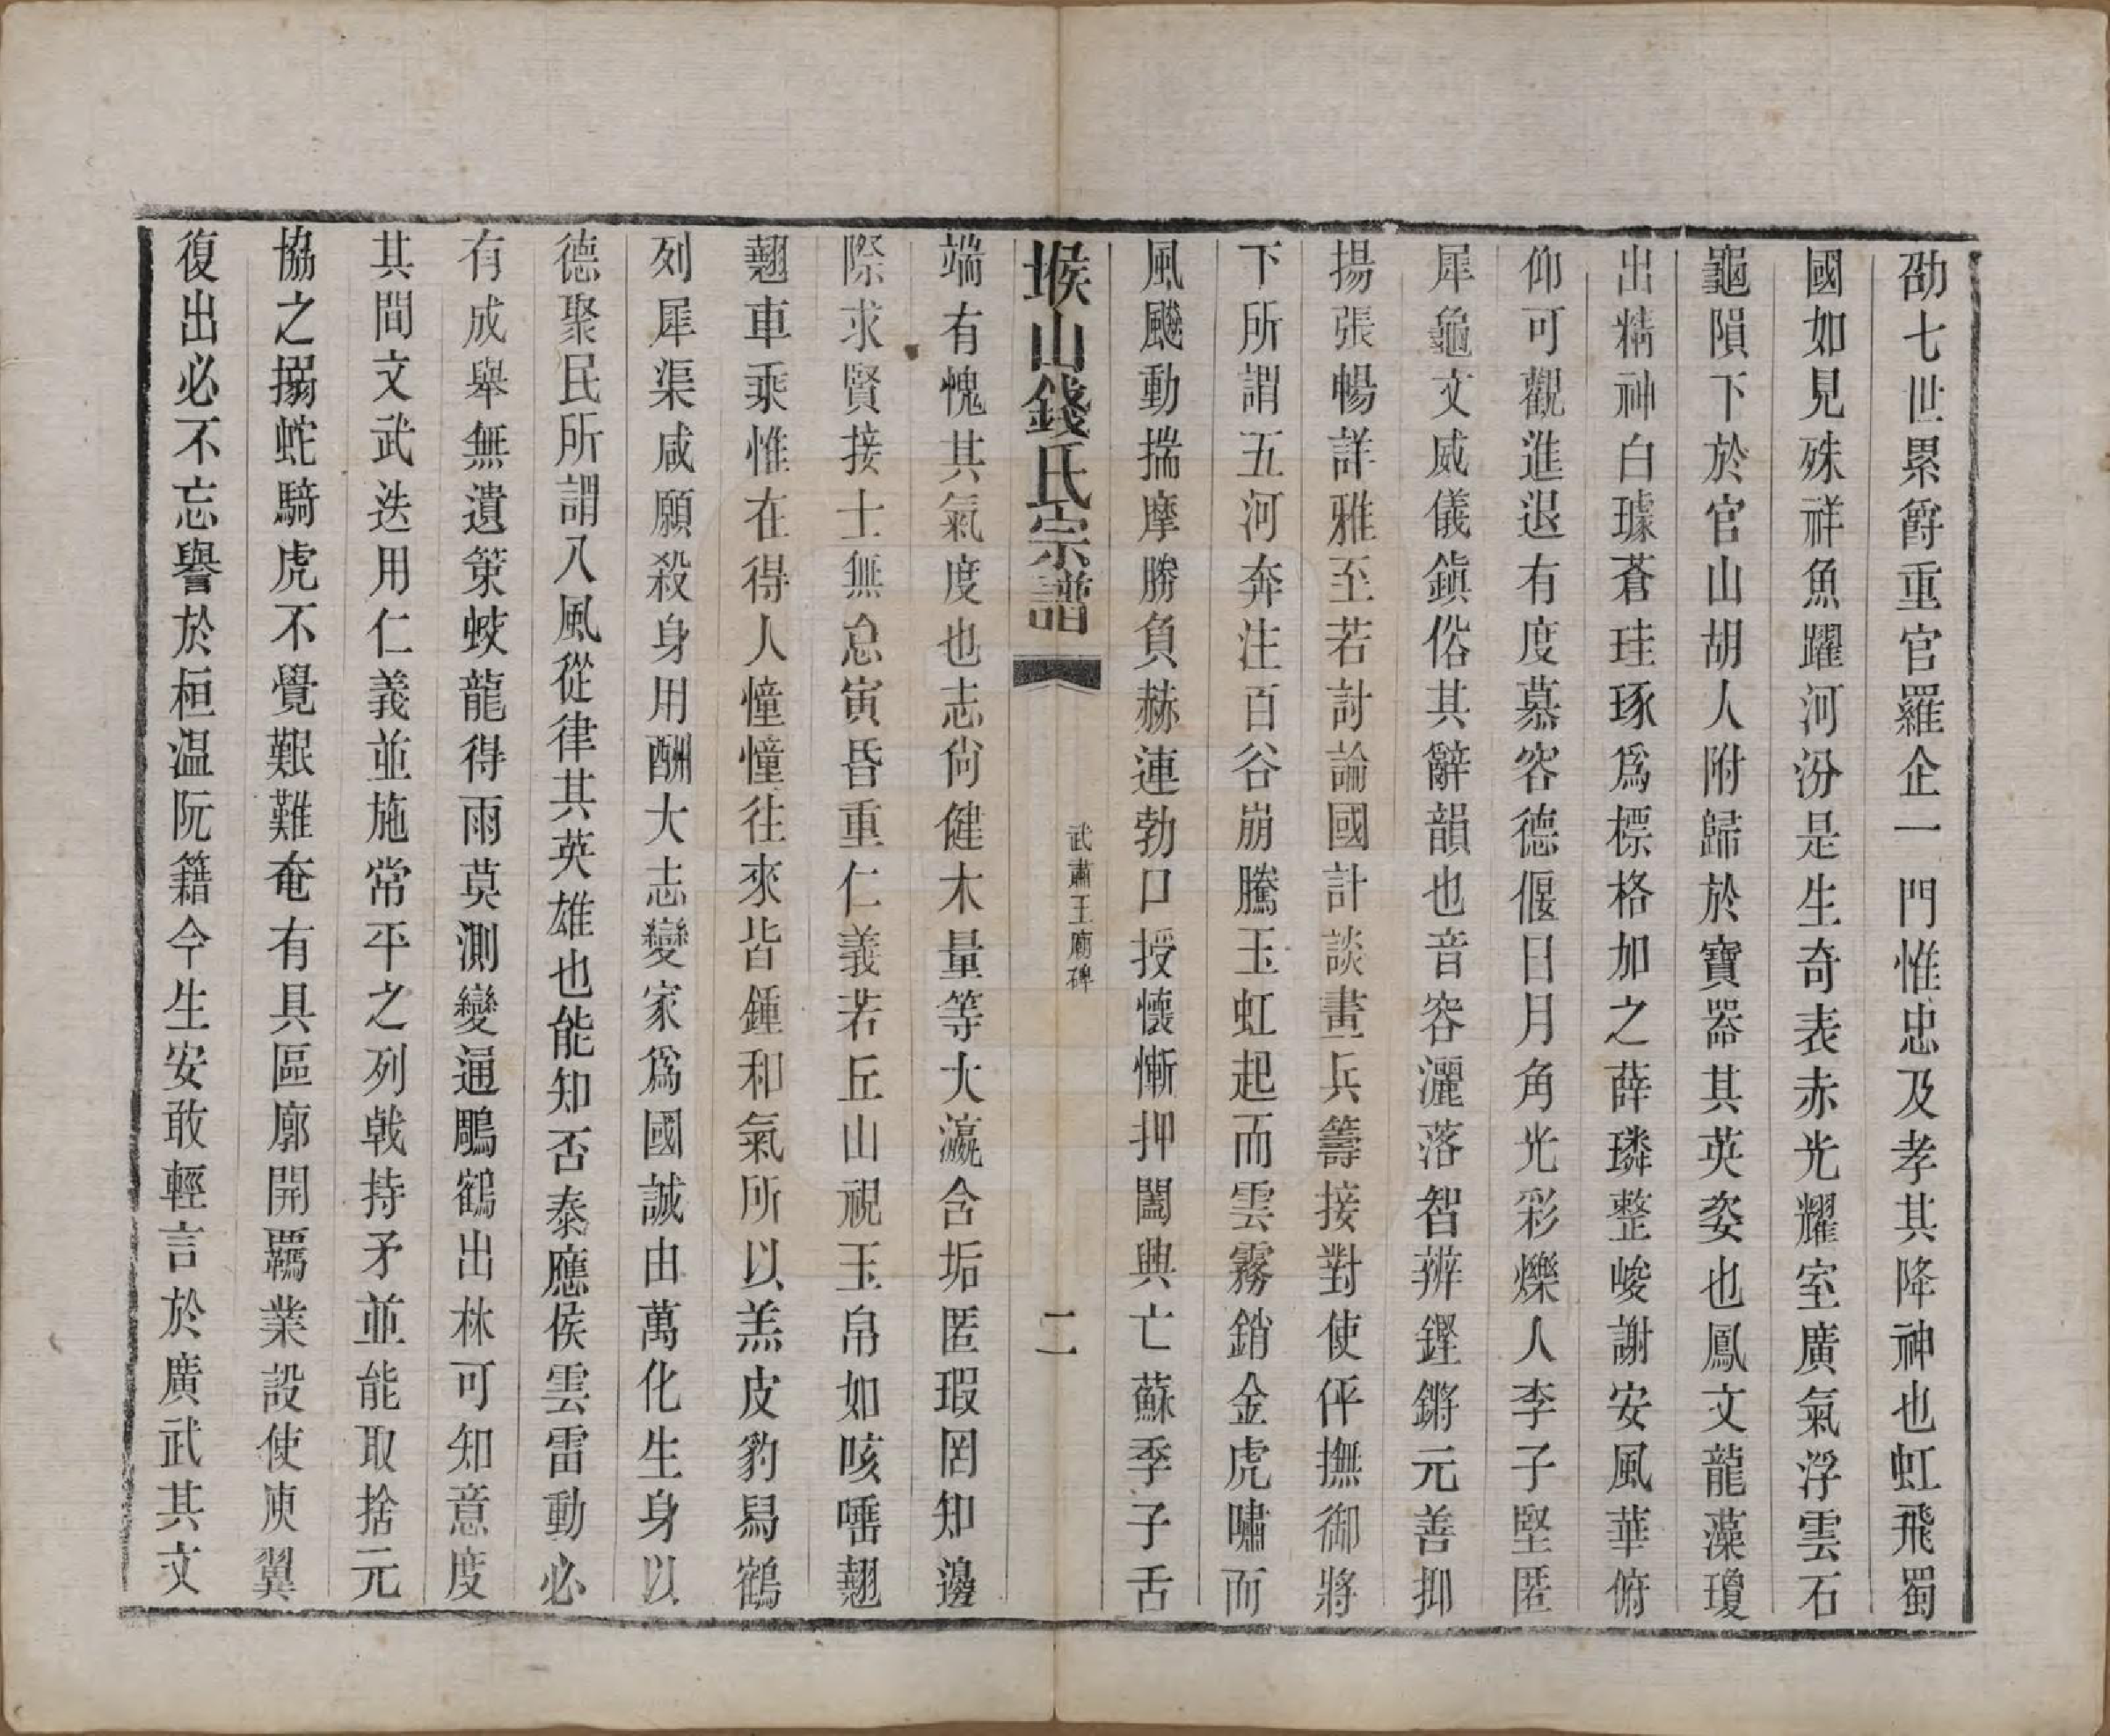 劭七世累爵重官羅企一門惟忠及孝其降神也虹飛蜀
國如見殊祥魚躍河汾是生奇表赤光耀室廣氣浮雲石
龜隕下於官山胡人附歸於寶器其英姿也鳳文龍藻瓊
出精神白璩蒼珪琢爲標格加之薛璘整峻謝安風華俯
仰可觀進退有度慕容德偃日月角光彩爍人李子堅匿
犀龜文威儀鎭俗其辭韻也音容灑落智辨鏗鏘元善抑
揚張暢詳雅至若討論國計談畫兵籌接對使伻撫御將
下所謂五河奔注百谷崩騰玉虹起而雲霧銷金虎嘯而
風飈動揣摩勝負赫連勃口授懷慚押闔興亡蘇季子舌
堠山錢氏宗譜
武肅王廟碑
二
端有愧其氣度也志尙健木量等大瀛含垢匿瑕罔知邊
際求賢接士無怠寅昏重仁義若丘山視玉帛如咳唾翹
翹車乘惟在得人憧憧往來皆鍾和氣所以羔皮豹舄鶴
列犀渠咸願殺身用酬大志變家爲國誠由萬化生身以
德聚民所謂八風從律其英雄也能知否泰應侯雲雷動必
有成舉無遺策蛟龍得雨莫測變通鵰鶴出林可知意度
其間文武迭用仁義並施常平之列戟持矛並能取捨元
協之搦蛇騎虎不覺艱難奄有具區廓開覊業設使庾翼
復出必不忘譽於桓温阮籍今生安敢輕言於廣武其文